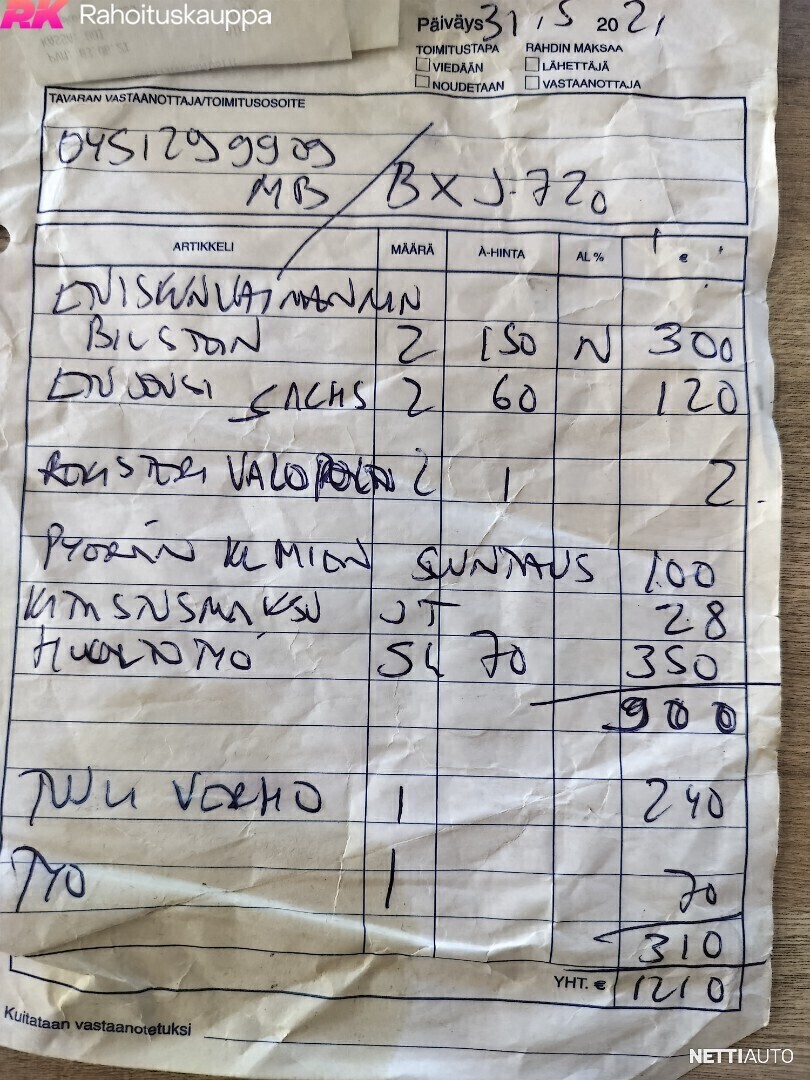 RK Rahoituskauppa
Päiväys 31.5 2021
TOIMITUSTAPA RAHDIN MAKSAA
VIEDÄÄN LÄHETTÄJÄ
NOUDETAAN VASTAANOTTAJA
TAVARAN VASTAANOTTAJA/TOIMITUSOSOITE
0451299909
MB / BXJ-720
ARTIKKELI MÄÄRÄ À-HINTA AL % €
BILSTEIN 2 150 N 300
ETUJOUSI SACHS 2 60 120
VALO 2 1 2
PYÖRÄN SUNTAUS 100
28
HUOLTOTYÖ 5h 70 350
900
TUULI VERHO 1 240
TYÖ 1 70
310
YHT. € 1210
Kuitataan vastaanotetuksi
NETTIAUTO